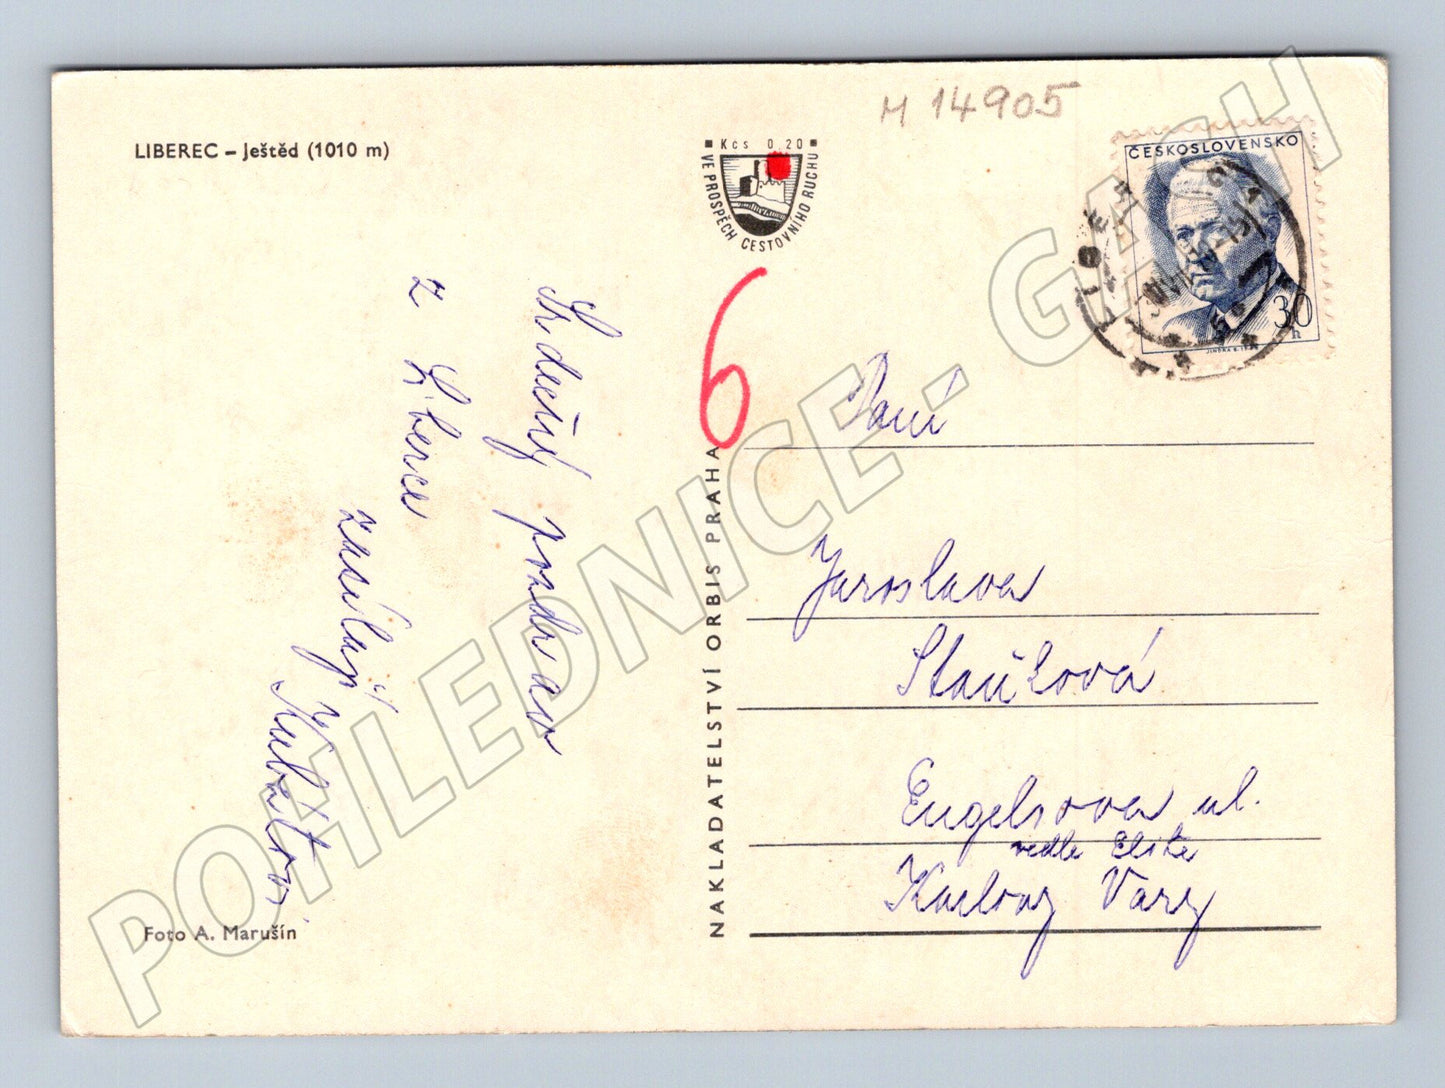 LIBEREC – Ještěd (1010 m)
M 14905
Kcs 0,20
VE PROSPĚCH CESTOVNÍHO RUCHU
ČESKOSLOVENSKO
30
h
6
Srdečný pozdrav
z Liberce
zasílají
Kubátovi
Foto A. Marušín
NAKLADATELSTVÍ ORBIS PRAHA
Paní
Jaroslava
Engelsova ul.
vedle Elite
Karlovy Vary
POHLEDNICE - GASH